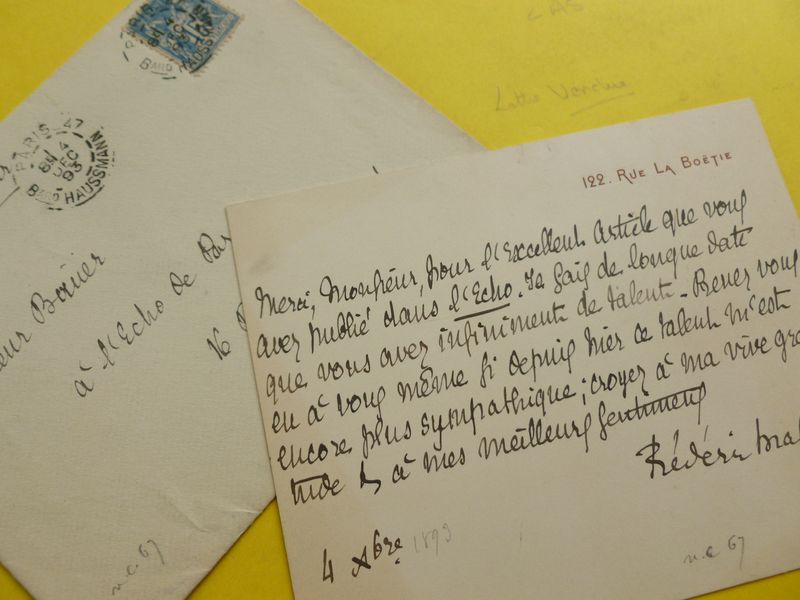 LAS
Lettre Verdine
PARIS 47
8E 4
DEC
93
Bard HAUSSMANN
PARIS
8E 4
DEC
93
Bard HAUSSMANN
15
eur Bauër
à l'Echo de Par
16
n.c. 67
122. RUE LA BOËTIE
Merci, Monsieur, pour l'Excellent Article que vous
avez publié dans l'Echo. Je sais de longue date
que vous avez infiniment de talent - Prenez vous
en à vous même si depuis hier ce talent m'est
encore plus sympathique ; croyez à ma vive gra
titude & à mes meilleurs sentiments
Frédéric
4 Xbre 1893
n.c 67